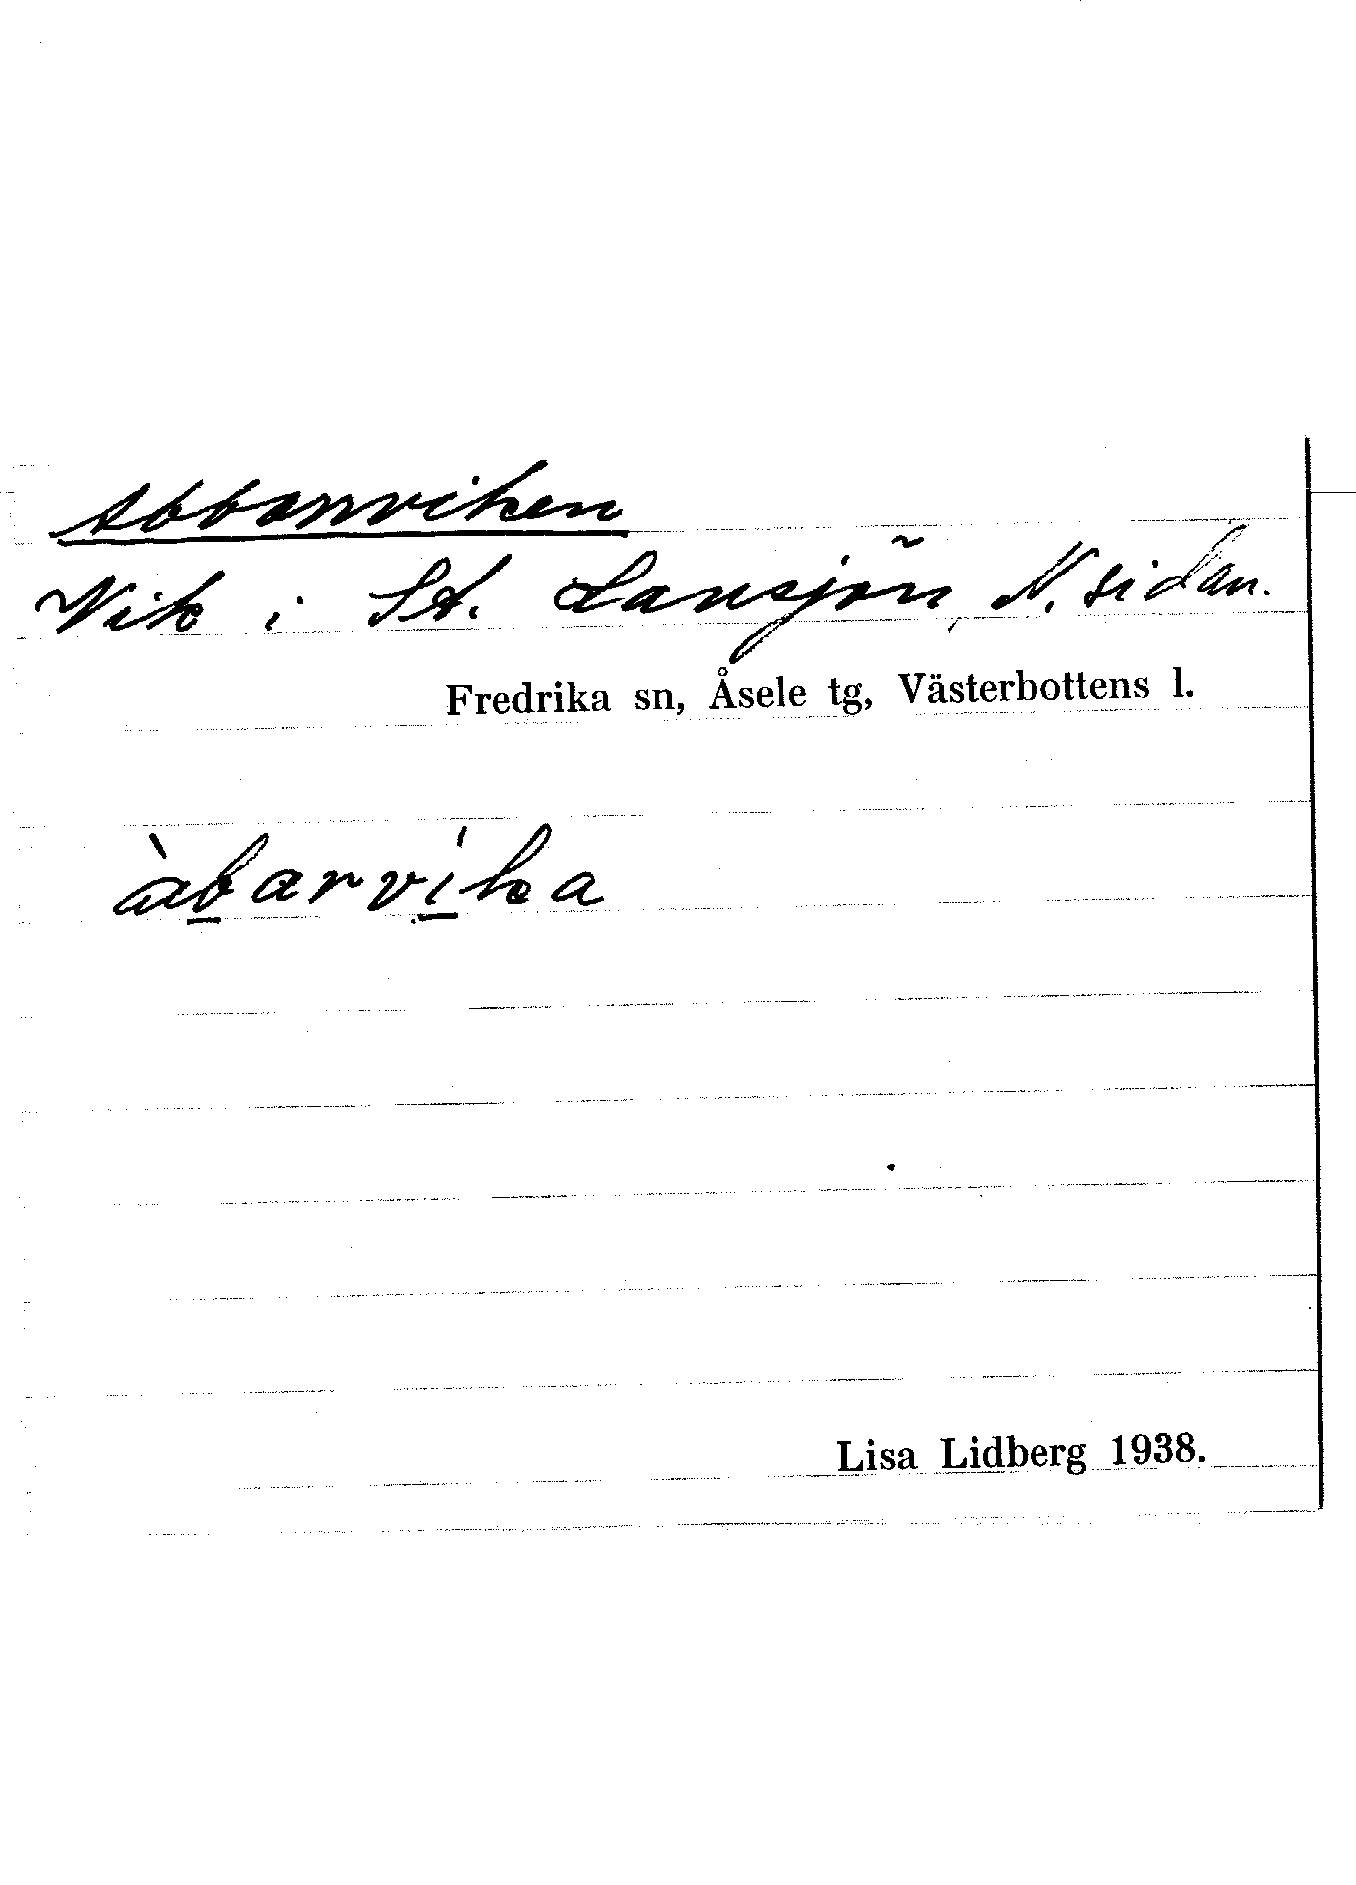 Abbarrviken
Vik i St. Lansjön, N. sidan.
Fredrika sn, Åsele tg, Västerbottens l.
àbarvíka
Lisa Lidberg 1938.